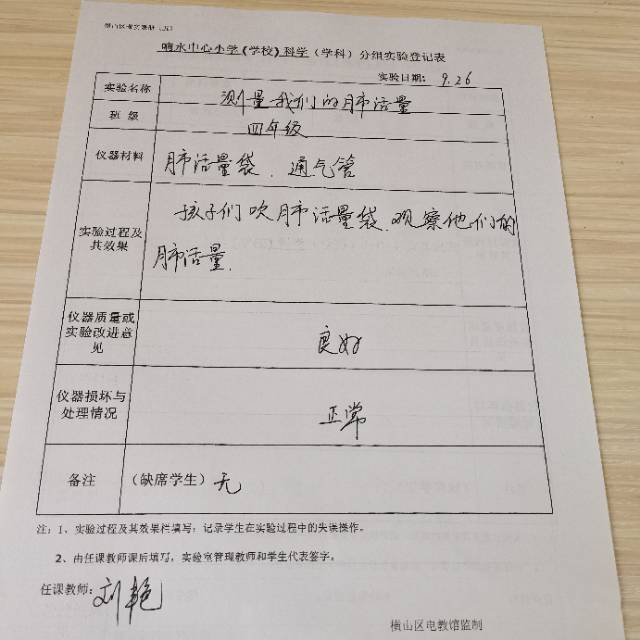 响水中心小学(学校)科学(学科)分组实验登记表
实验日期: 9.26
实验名称 测量我们的肺活量
班 级 四年级
仪器材料 肺活量袋、通气管
孩子们吹肺活量袋,观察他们的
实验过程及
其效果
肺活量.
仪器质量或
实验改进意
见
良好
仪器损坏与
处理情况
正常
备注 (缺席学生)无
注:1、实验过程及其效果栏填写:记录学生在实验过程中的失误操作。
2、由任课教师课后填写,实验室管理教师和学生代表签字。
任课教师:刘艳
横山区电教馆监制